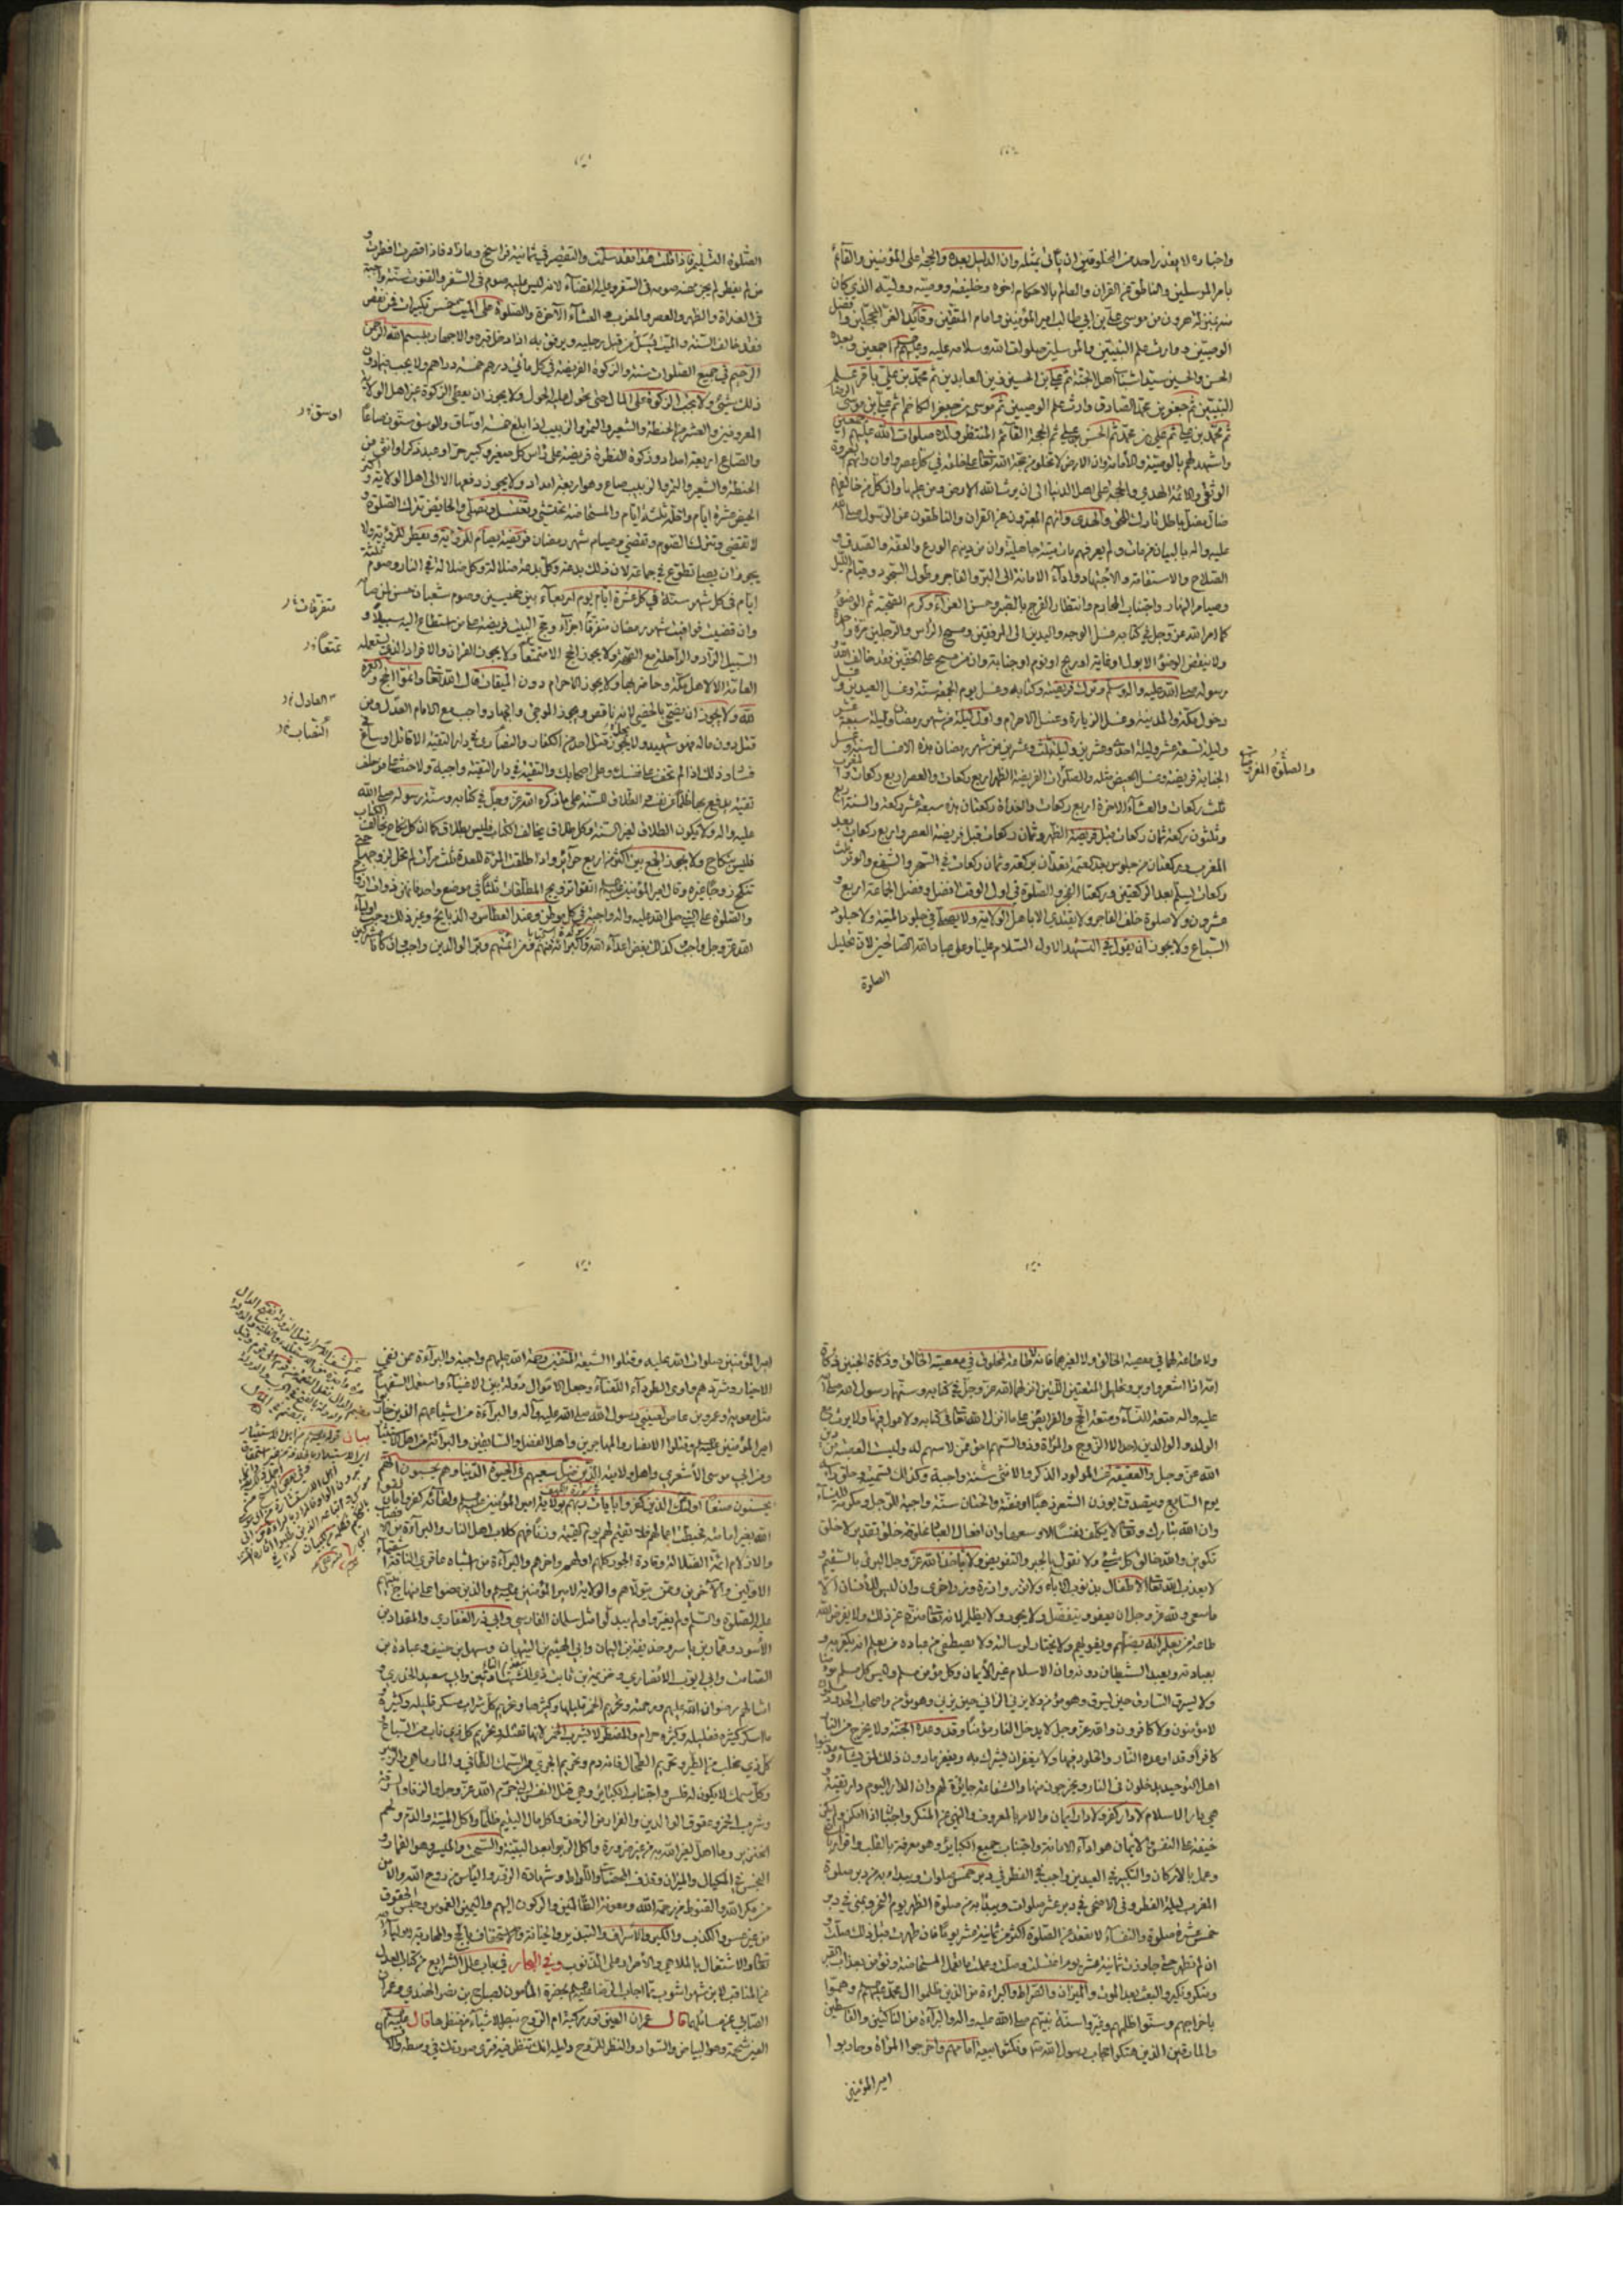 واخباره لا يقدر احد من المخلوقين ان يأتى بمثله وان الدليل بعده والحجة على المؤمنين والقائم
بامر المسلمين والناطق عن القران والعالم بالاحكام اخوه وخليفته ووصيه ووليه الذي كان
منه بمنزلة هرون من موسى على بن ابي طالب امير المؤمنين وامام المتقين وقائد الغر المحجلين وافضل
الوصيين ووارث علم النبيين والمرسلين صلوات الله وسلامه عليه وعليهم اجمعين وبعده
الحسن والحسين سيدا شباب اهل الجنة ثم على بن الحسين زين العابدين ثم محمد بن على باقر علم
النبيين ثم جعفر بن محمد الصادق وارث علم الوصيين ثم موسى بن جعفر الكاظم ثم على بن موسى الرضا
ثم محمد بن على ثم على بن محمد ثم الحسن بن على ثم الحجة القائم المنتظر ولده صلوات الله عليهم اجمعين
واشهد لهم بالوصية والامامة وان الارض لا تخلو من حجة الله تعالى على خلقه في كل عصر واوان وانهم العروة
الوثقى وائمة الهدى والحجة على اهل الدنيا الى ان يرث الله الارض ومن عليها وان كل من خالفهم
ضال مضل باطل تارك للحق والهدى وانهم المعبرون عن القران والناطقون عن الرسول صلى الله
عليه واله بالبيان من مات ولم يعرفهم مات ميتة جاهلية وان من دينهم الورع والعفة والصدق و
الصلاح والاستقامة والاجتهاد واداء الامانة الى البر والفاجر وطول السجود وقيام الليل
وصيام النهار واجتناب المحارم وانتظار الفرج بالصبر وحسن العزاء وكرم الصحبة ثم الوضوء
كما امر الله عز وجل في كتابه غسل الوجه واليدين الى المرفقين ومسح الراس والرجلين مرة واحدة
ولا ينقض الوضوء الا بول او غايط او ريح او نوم او جنابة وان من مسح على الخفين فقد خالف الله و
رسوله صلى الله عليه واله وسلم وترك فريضته وكتابه وغسل يوم الجمعة سنة وغسل العيدين و
دخول مكة والمدينة وغسل الزيارة وغسل الاحرام واول ليلة من شهر رمضان وليلة سبعة عشر
وليلة تسعة عشر وليلة احدى وعشرين وليلة ثلث وعشرين من شهر رمضان هذه الاغسال سنة وغسل
الجنابة فريضة وغسل الحيض مثله والصلوات الفريضة الظهر اربع ركعات والعصر اربع ركعات والمغرب
ثلث ركعات والعشاء الاخرة اربع ركعات والغداة ركعتان هذه سبعة عشر ركعة والسنة اربع
وثلثون ركعة ثمان ركعات قبل فريضة الظهر وثمان ركعات قبل فريضة العصر واربع ركعات بعد
المغرب وركعتان من جلوس بعد العتمة تعدان بركعة وثمان ركعات في السحر والشفع والوتر ثلث
ركعات يسلم بعد الركعتين وركعتا الفجر والصلوة في اول الوقت افضل وفضل الجماعة اربع و
عشرون ولا صلوة خلف الفاجر ولا يقتدى الا باهل الولاية ولا يصلى في جلود الميتة ولا جلود
السباع ولا يجوز ان يقول في التشهد الاول السلام علينا وعلى عباد الله الصالحين لان تحليل
الصلوة
والصلوة المفروضة
الصلوة التسليم فاذا قلت هذا فقد سلمت والتقصير في ثمانية فراسخ وما زاد فاذا قصرت افطرت و
من لم يفطر لم يجز عنه صومه في السفر وعليه القضاء لانه ليس عليه صوم في السفر والقنوت سنة واجبة
في الغداة والظهر والعصر والمغرب والعشاء الاخرة والصلوة على الميت خمس تكبيرات فمن نقص
فقد خالف السنة والميت يسل من قبل رجليه ويرفق به اذا دخل قبره والاجهار ببسم الله الرحمن
الرحيم في جميع الصلوات سنة والزكوة الفريضة في كل مأتي درهم خمسة دراهم ولا يجب فيما دون
ذلك شئ ولا يجب الزكوة على المال حتى يحول عليه الحول ولا يجوز ان يعطى الزكوة غير اهل الولاية
المعروفين والعشر من الحنطة والشعير والتمر والزبيب اذا بلغ خمسة اوساق والوسق ستون صاعا
والصاع اربعة امداد وزكوة الفطرة فريضة على راس كل صغير وكبير حر او عبد ذكر او انثى من
الحنطة والشعير والتمر والزبيب صاع وهو اربعة امداد ولا يجوز دفعها الا الى اهل الولاية واكثر
الحيض عشرة ايام واقله ثلثة ايام والمستحاضة تحتشى وتغتسل وتصلى والحايض تترك الصلوة
لا تقضى وتترك الصوم وتقضى وصيام شهر رمضان فريضة يصام للرؤية ويفطر للرؤية ولا
يجوز ان يصلى تطوع في جماعة لان ذلك بدعة وكل بدعة ضلالة وكل ضلالة في النار وصوم ثلثة
ايام في كل شهر سنة في كل عشرة ايام يوم اربعاء بين خميسين وصوم شعبان حسن لمن صامه
وان قضيت فوائت شهر رمضان متفرقا اجزاء وحج البيت فريضة على من استطاع اليه سبيلا و
السبيل الزاد والراحلة مع الصحة ولا يجوز الحج الا متمتعا ولا يجوز القران والافراد الذي يستعمله
العامة الا لاهل مكة وحاضريها ولا يجوز الاحرام دون الميقات قال الله تعالى واتموا الحج والعمرة
لله ولا يجوز ان يضحى بالخصى لانه ناقص ويجوز الموجئ والجهاد واجب مع الامام العدل ومن
قتل دون ماله فهو شهيد ولا يجوز قتل احد من الكفار والنصارى في دار التقية الا قاتل او ساع في
فساد وذلك اذا لم تخف على نفسك وعلى اصحابك والتقية في دار التقية واجبة ولا حنث على من حلف
تقية يدفع بها ظلما عن نفسه والطلاق للسنة على ما ذكره الله عز وجل في كتابه وسنة رسوله صلى الله
عليه واله ولا يكون الطلاق لغير السنة وكل طلاق يخالف الكتاب فليس بطلاق كما ان كل نكاح يخالف الكتاب
فليس بنكاح ولا يجوز الجمع بين اكثر من اربع حرائر واذا طلقت المراة للعدة ثلث مرات لم تحل لزوجها حتى
تنكح زوجا غيره وقال امير المؤمنين اتقوا تزويج المطلقات ثلثا في موضع واحد فانهن ذوات ازواج
والصلوة على النبي صلى الله عليه واله واجبة في كل موطن وعند العطاس والذبايح وغير ذلك وحب اولياء
الله عز وجل واجب كذلك بغض اعداء الله والبرائة منهم ومن ائمتهم وبر الوالدين واجب وان كانا مشركين
اوسق
متفرقات
تمتعا
العادل
النصاب
ولا طاعة لهما في معصية الخالق ولا لغيرهما فانه لا طاعة لمخلوق في معصية الخالق وذكاة الجنين ذكاة
امه اذا اشعر واوبر وتحليل المتعتين اللتين انزلهما الله عز وجل في كتابه وسنهما رسول الله صلى الله
عليه واله متعة النساء ومتعة الحج والفرايض على ما انزل الله تعالى في كتابه ولا عول فيها ولا يرث مع
الولد والوالدين احد الا الزوج والمرأة وذو السهم احق ممن لا سهم له وليست العصبة من دين
الله عز وجل والعقيقة عن المولود الذكر والانثى سنة واجبة وكذلك تسميته وحلق راسه
يوم السابع ويتصدق بوزن الشعر ذهبا او فضة والختان سنة واجبة للرجل ومكرمة للنساء
وان الله تبارك وتعالى لا يكلف نفسا الا وسعها وان افعال العباد مخلوقة خلق تقدير لا خلق
تكوين والله خالق كل شئ ولا نقول بالجبر والتفويض ولا ياخذ الله عز وجل البرئ بالسقيم و
لا يعذب الله تعالى الاطفال بذنوب الاباء ولا تزر وازرة وزر اخرى وان ليس للانسان الا
ما سعى ولله عز وجل ان يعفو ويتفضل ولا يجور ولا يظلم لانه تعالى منزه عن ذلك ولا يفرض الله
طاعة من يعلم انه يضلهم ويغويهم ولا يختار لرسالته ولا يصطفى من عباده من يعلم انه يكفر به و
بعبادته ويعبد الشيطان دونه وان الاسلام غير الايمان وكل مؤمن مسلم وليس كل مسلم مؤمنا
ولا يسرق السارق حين يسرق وهو مؤمن ولا يزنى الزانى حين يزنى وهو مؤمن واصحاب الحدود مسلمون
لا مؤمنون ولا كافرون والله عز وجل لا يدخل النار مؤمنا وقد وعده الجنة ولا يخرج من النار
كافرا وقد اوعده النار والخلود فيها ولا يغفر ان يشرك به ويغفر ما دون ذلك لمن يشاء ومذنبوا
اهل التوحيد يدخلون في النار ويخرجون منها والشفاعة جايزة لهم وان الدار اليوم دار تقية و
هي دار الاسلام لا دار كفر ولا دار ايمان والامر بالمعروف والنهى عن المنكر واجبان اذا امكن ولم يكن
خيفة على النفس والايمان هو اداء الامانة واجتناب جميع الكبائر وهو معرفة بالقلب واقرار باللسان
وعمل بالاركان والتكبير في العيدين واجب في الفطر في دبر خمس صلوات ويبداء به في دبر صلوة
المغرب ليلة الفطر وفي الاضحى في دبر عشر صلوات ويبدا به من صلوة الظهر يوم النحر وبمنى في دبر
خمس عشرة صلوة والنفساء لا تقعد عن الصلوة اكثر من ثمانية عشر يوما فان طهرت قبل ذلك صلت و
ان لم تطهر حتى جاوزت ثمانية عشر يوما اغتسلت وصلت وعملت ما تعمل المستحاضة ونؤمن بعذاب القبر
ومنكر ونكير والبعث بعد الموت والميزان والصراط والبراءة من الذين ظلموا ال محمد عليهم وهموا
باخراجهم وسنوا ظلمهم وغيروا سنة نبيهم صلى الله عليه واله والبراءة من الناكثين والقاسطين
والمارقين الذين هتكوا حجاب رسول الله ونكثوا بيعة امامهم واخرجوا المرأة وحاربوا
امير المؤمنين
امير المؤمنين صلوات الله عليه وقتلوا الشيعة المتقين رحمة الله عليهم واجبة والبراءة ممن نفى
الاخيار وشردهم واوى الطرداء اللعناء وجعل الاموال دولة بين الاغنياء واستعمل السفهاء
مثل معوية وعمرو بن عاص لعينى رسول الله صلى الله عليه وآله والبراءة من اشياعهم الذين حاربوا
امير المؤمنين وقتلوا الانصار والمهاجرين واهل الفضل والسابقين والبرائة من اهل الاستيثار
ومن ابي موسى الأشعري واهل ولايته الذين ضل سعيهم في الحيوة الدنيا وهم يحسبون انهم
يحسنون صنعا اولئك الذين كفروا بايات ربهم بولاية امير المؤمنين ولقائه كفروا بان لقوا
الله بغير امامته فحبطت اعمالهم فلا نقيم لهم يوم القيمة وزنا فهم كلاب اهل النار والبراءة من الانصاب
والازلام ائمة الضلالة وقادة الجور كلهم اولهم واخرهم والبراءة من اشباه عاقرى الناقة اشقياء
الاولين والآخرين وممن يتولاهم والولاية لامير المؤمنين والذين مضوا على منهاج نبيهم
عليه الصلوة والسلم ولم يغيروا ولم يبدلوا مثل سلمان الفارسي وابي ذر الغفاري والمقداد بن
الأسود وعمار بن ياسر وحذيفة بن اليمان وابي الهيثم بن التيهان وسهل بن حنيف وعبادة بن
الصامت وابي ايوب الانصاري وخزيمة بن ثابت ذي الشهادتين وابي سعيد الخدري و
امثالهم رضوان الله عليهم ورحمته وتحريم الخمر قليلها وكثيرها وتحريم كل شراب مسكر قليله وكثيره
ما اسكر كثيره فقليله وكثيره حرام والمضطر لا يشرب الخمر لانها تقتله وتحريم كل ذي ناب من السباع و
كل ذي مخلب من الطير وتحريم الطحال فانه دم وتحريم الجرى والسمك الطافي والمارماهي والزمير
وكل سمك لا يكون له فلس واجتناب الكبائر وهي قتل النفس التي حرم الله عز وجل والزنا والسرقة
وشرب الخمر وعقوق الوالدين والفرار من الزحف واكل مال اليتيم ظلما واكل الميتة والدم ولحم
الخنزير وما اهل لغير الله به من غير ضرورة واكل الربوا بعد البينة والسحت والميسر وهو القمار و
البخس في المكيال والميزان وقذف المحصنات واللواط وشهادة الزور والياس من روح الله والامن
من مكر الله والقنوط من رحمة الله ومعونة الظالمين والركون اليهم واليمين الغموس وحبس الحقوق
من غير عسر والكذب والكبر والاسراف والتبذير والخيانة والاستخفاف بالحج والمحاربة لاولياء الله
تعالى والاشتغال بالملاهي والاصرار على الذنوب وفي البحار في باب علل الشرايع من كتاب العدل
عن المناقب لابن شهر اشوب مما اجاب الرضا بحضرة المأمون لصباح بن نصر الهندي وعمران
الصابى عن مسائلهما قال عمران العين نور مركبة ام الروح تبصر الاشياء من منظرها قال
العين شحمة وهو البياض والسواد والنظر للروح دليله انك تنظر فيه فترى صورتك في وسطه والا